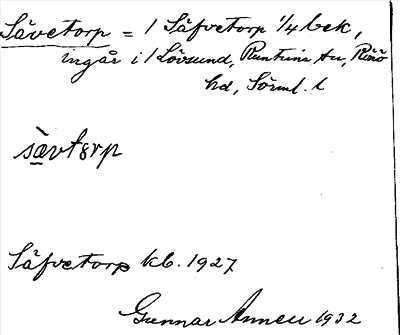 Sävetorp = 1 Säfvetorp 1/4 bek,
ingår i 1 Lövsund, Runtuna sn, Rönö
hd, Sörml. l
sävtorp
Säfvetorp kb. 1927
Gunnar Annell 1932